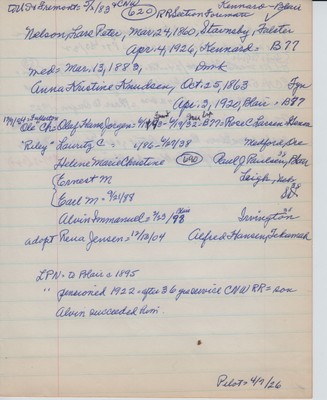 Fremont= 2/2/83 CNW Kennard - Blair
(620) RR Section Foreman
Nelson, Lars Peter, Mar. 24, 1860, Stavnsby, Falster
Apr. 4, 1926, Kennard= B77
med= Mar. 13, 1883, Dmk
Anna Kristine Knudsen, Oct. 25, 1863 Fyn
Apr. 2, 1920, Blair = B87
"Ole" Chr. Olaf Hans Jorgen= B77= Rose C. Larsen
"Riley" Lauritz C. =/86- Medford, Ore
Helene Marie Christine (620) Paul J. Paulsen, Blair
Ernest M Leigh, Neb.
Earl M= 3/21/88 SD
Alvin Immanuel= Blair Irvington
adopt Rena Jensen= 12/13/04 Alfred Hansen, Tekamah
LPN - to Blair = 1895
" pensioned 1922 - after 36 yrs service CNW RR= son
Alvin succeeded him.
Pilot= 4/7/26